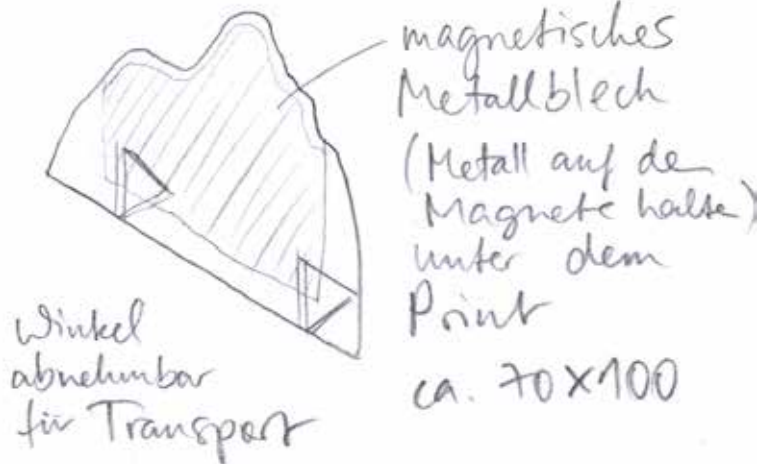 magnetisches
Metallblech
(Metall auf dem
Magnete halten)
unter dem
Print
ca. 70x100
Winkel
abnehmbar
für Transport